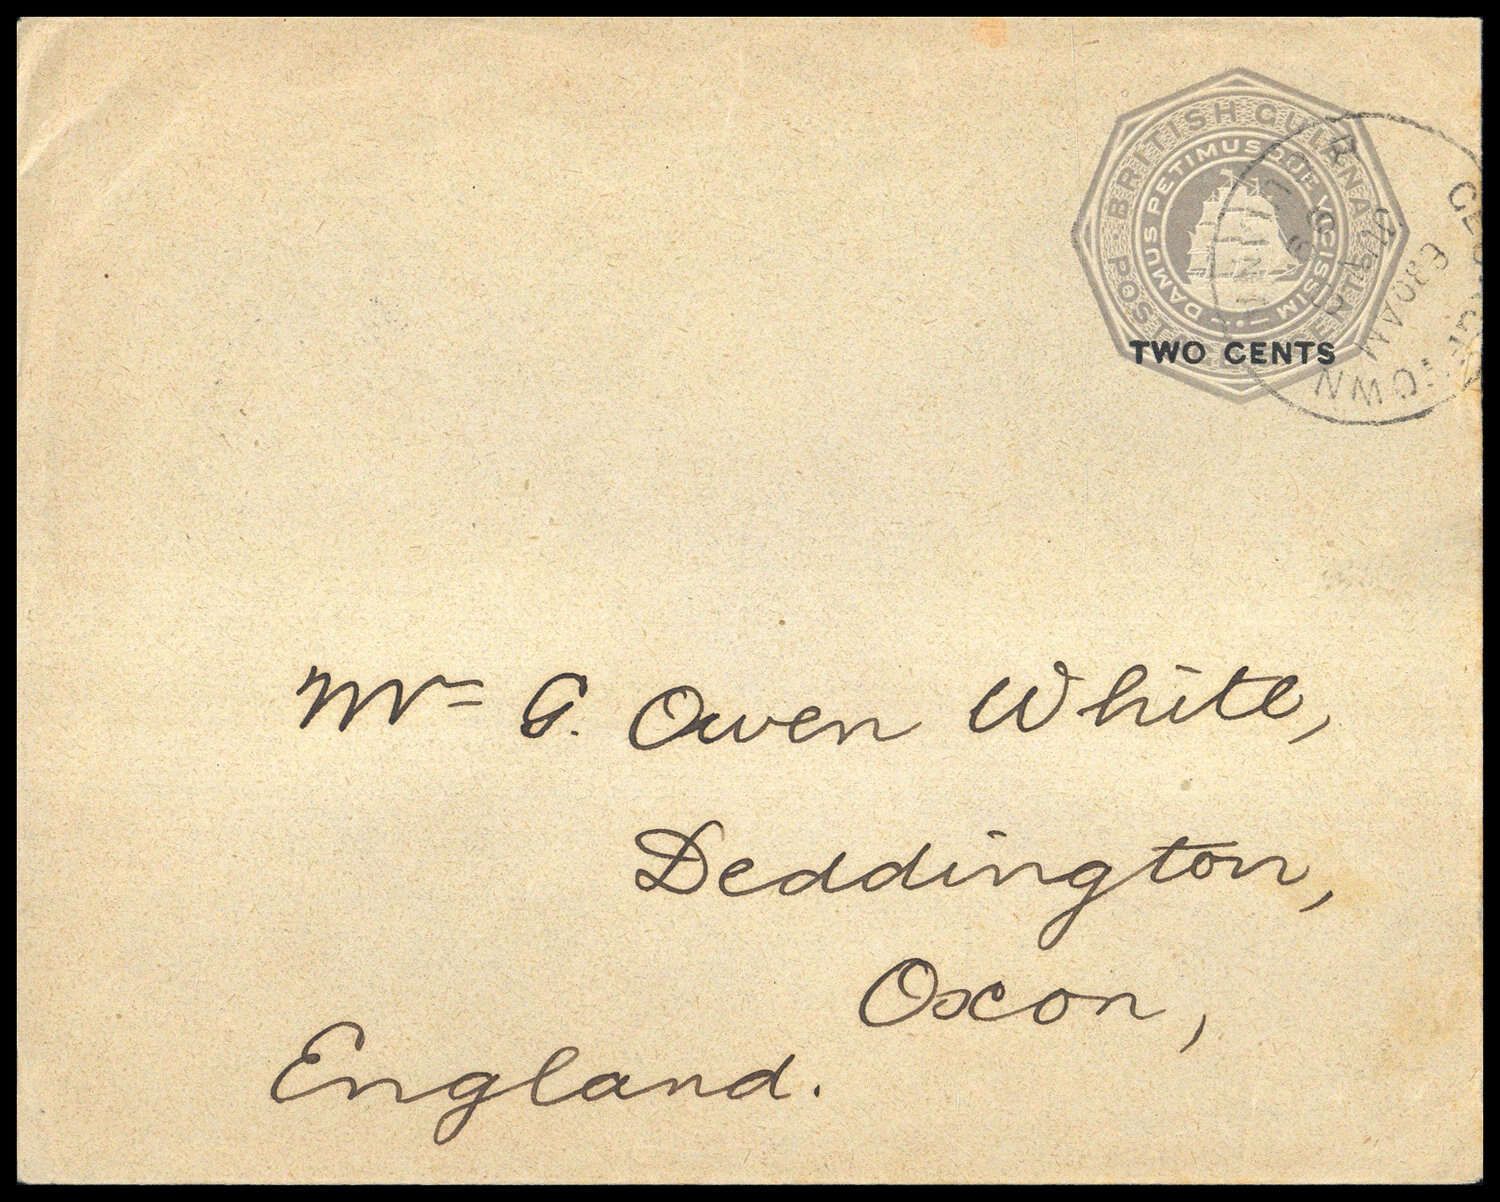 BRITISH GUIANA
DAMUS PETIMUSQUE VICISSIM
TWO CENTS
GEORGETOWN
630AM
Mr G. Owen White,
Deddington,
Oxon,
England.